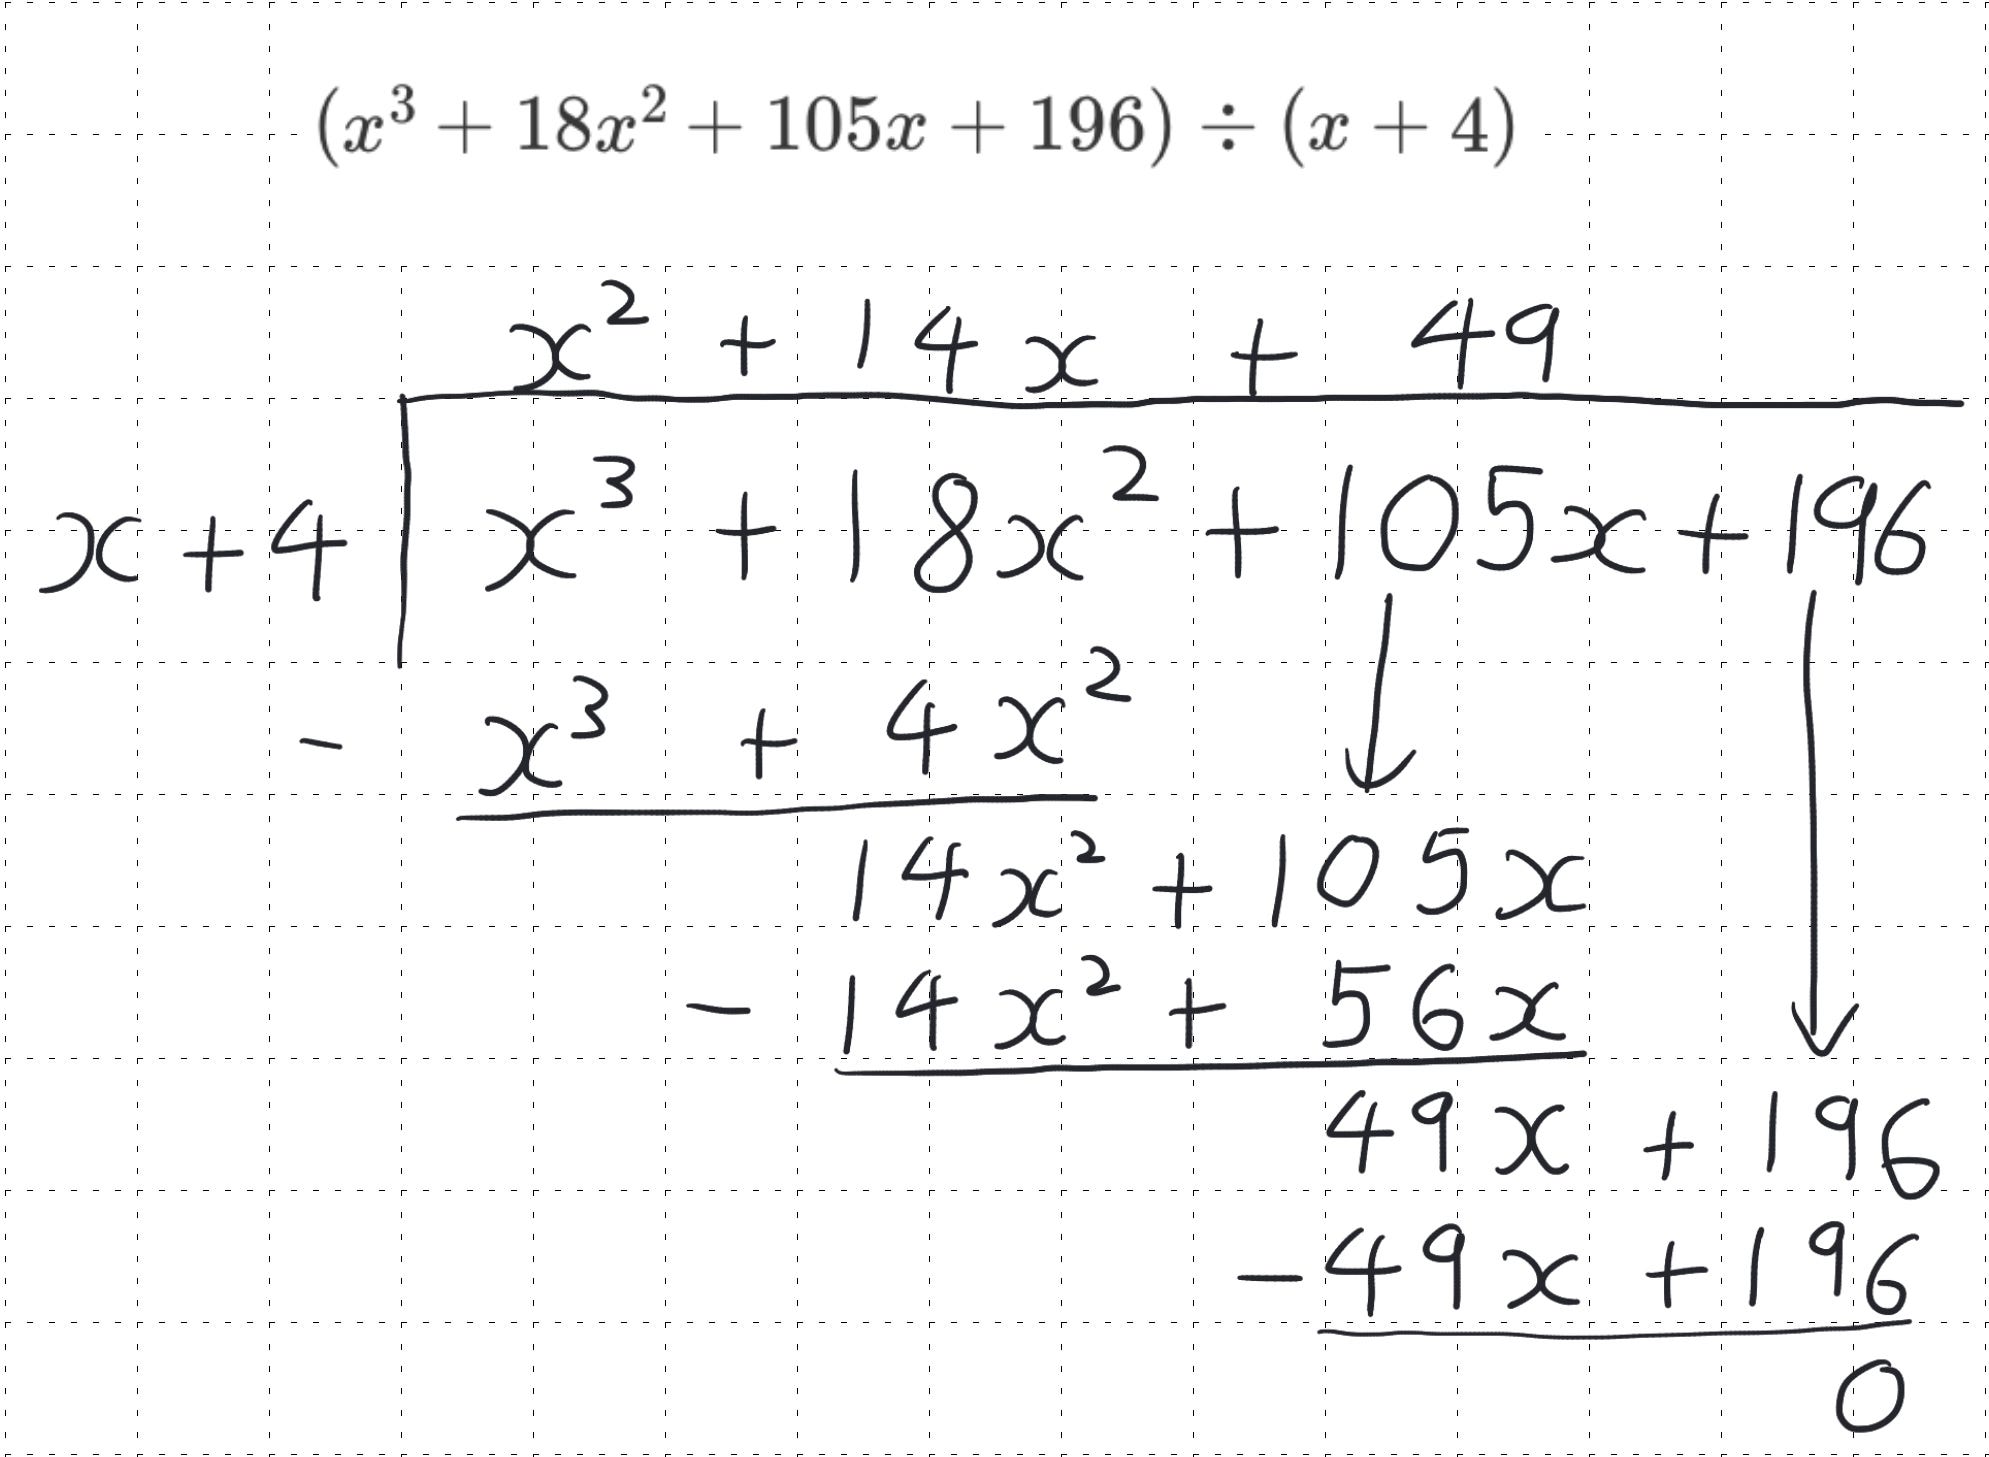 (x³ + 18x² + 105x + 196) ÷ (x + 4)
x² + 14x + 49
x + 4 x³ + 18x² + 105x + 196
- x³ + 4x²
14x² + 105x
- 14x² + 56x
49x + 196
- 49x + 196
0